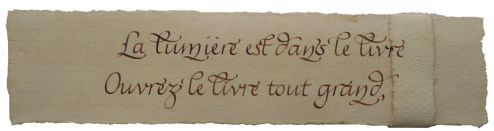 La lumière est dans le livre
Ouvrez le livre tout grand,